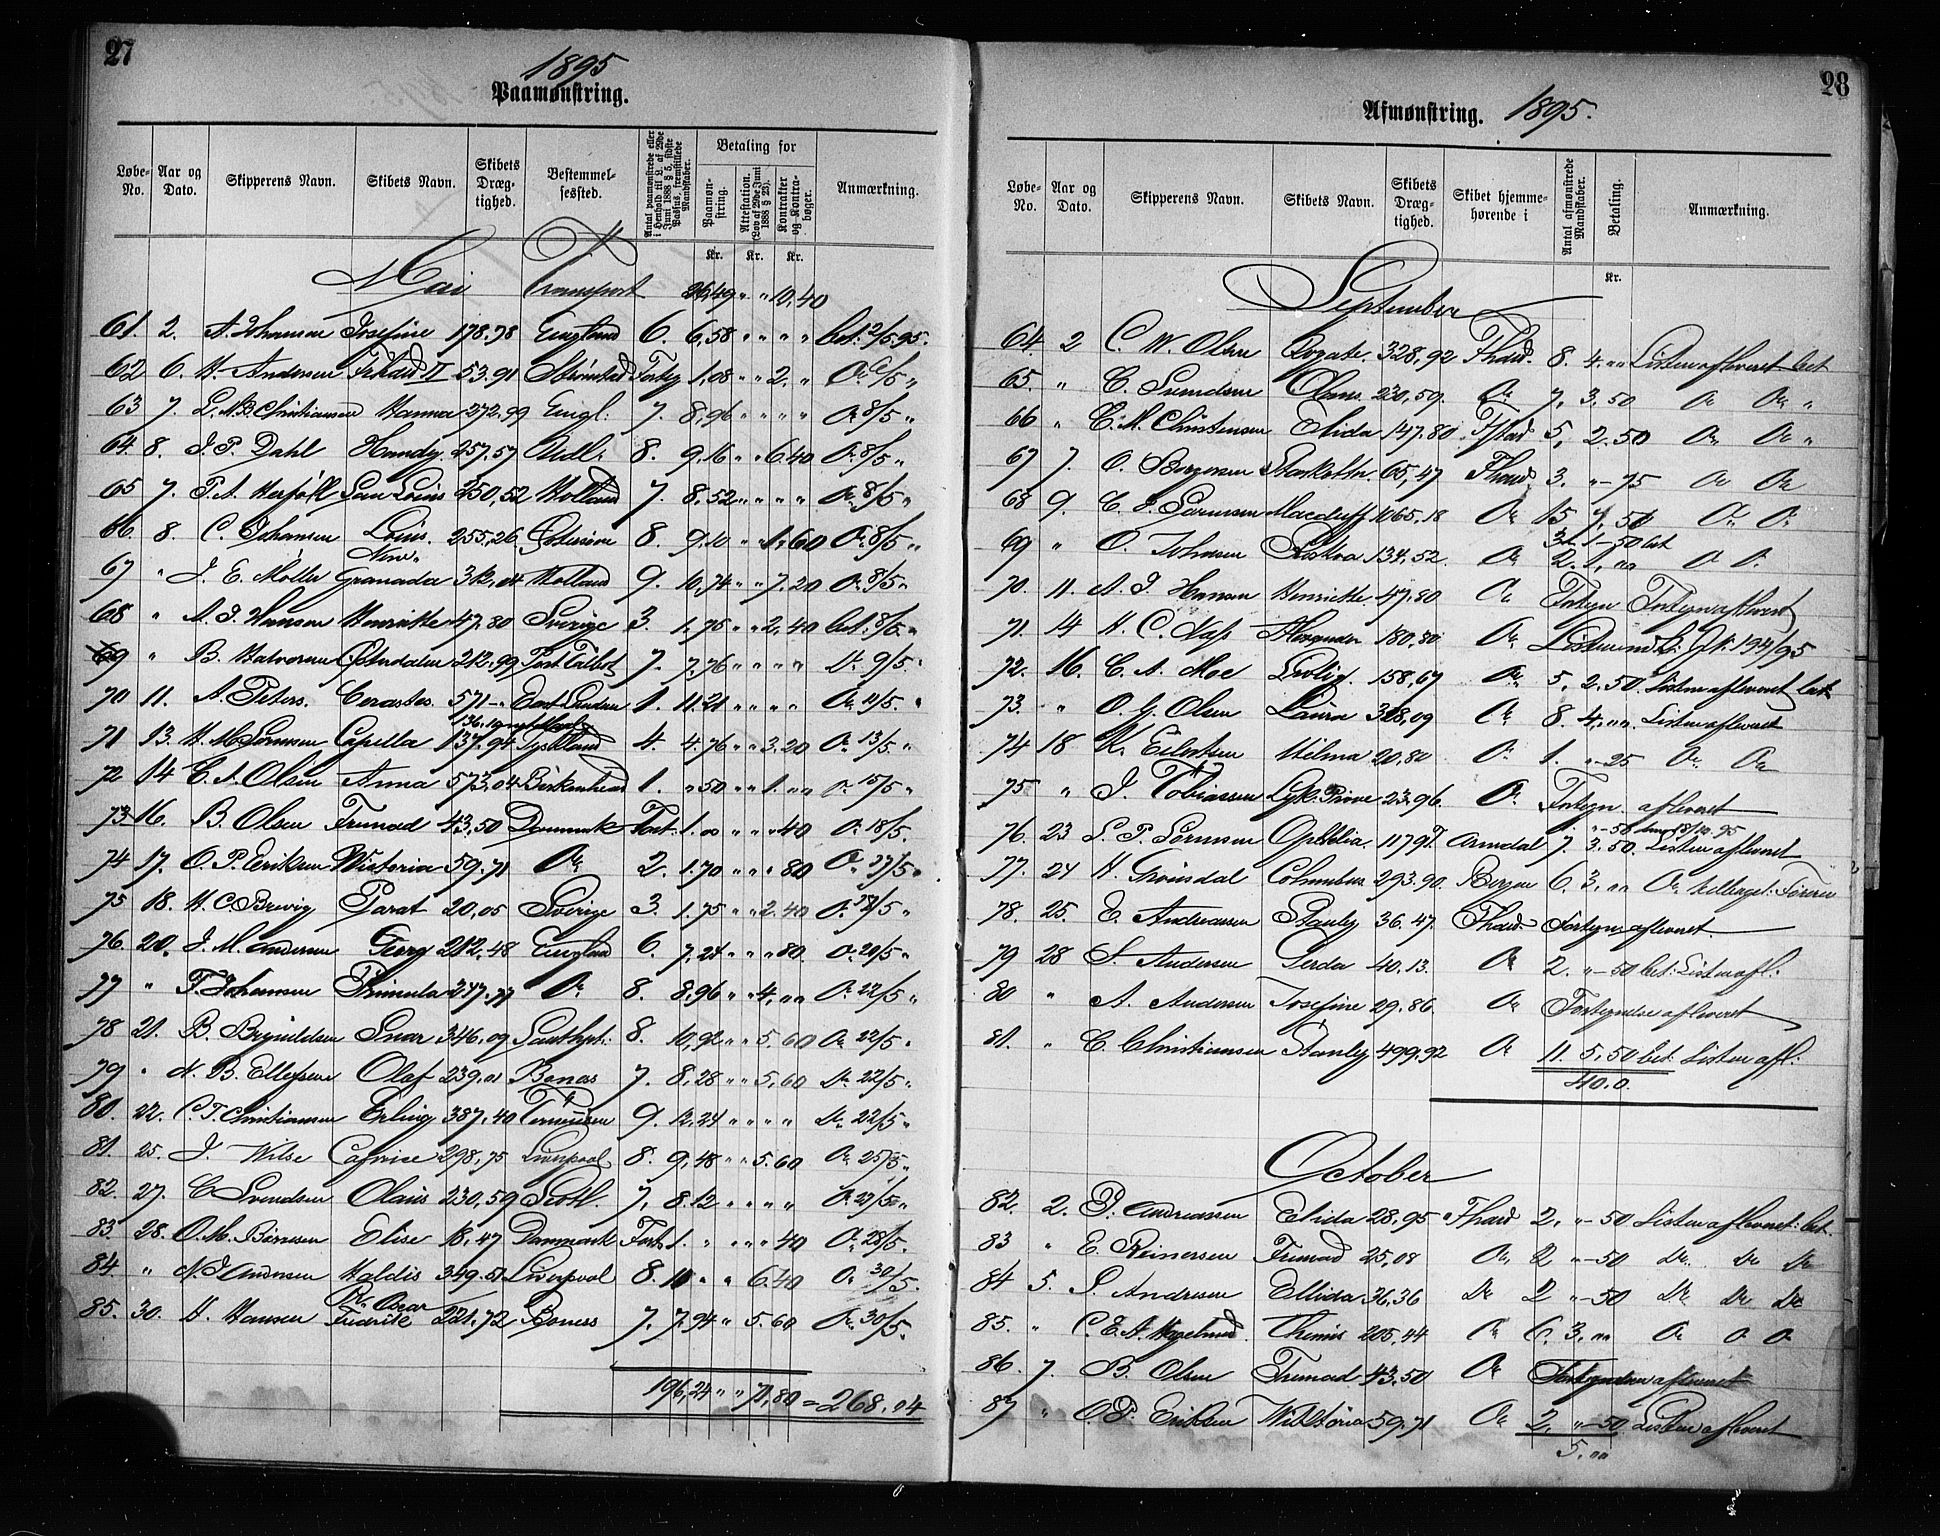 27
1895
Paamønstring.
Løbe-No. Aar og Dato. Skipperens Navn. Skibets Navn. Skibets Dræg-tighed. Bestemmel-sessted. Antal paamønstrede eller i Henhold til L. af 29de Juni 1888 § 5, sidste Passus, fremstillede Mandskaber. Betaling for Paamøn-string. Attestation. (Lov af 29de Juni 1888 § 23). Kontrakter og Kontra-bøger. Anmærkning.
Kr. Kr. Kr.
Mai Transport 26,49 " " 10,40
61. 2. A. Johansen Josefine 178.78 England 6. 6,58 " " " " bet. 2/5 95.
62 6. H. Andersen Frhald II 53.91 Strömstad Forteg 1,08 " " 2, " Do 6/5 "
63 7. L. N. B. Christiansen Hanna 272,99 Engl: 7. 8,96 " " " " Do 8/5 "
64. 8. J. P. Dahl Handy 257.57 Udl. 8. 9,16 " " 6.40 Do 8/5 "
65 7. T. A. Herföll San Louis 250,52 Holland 7. 8,52 " " " " Do 8/5 "
66. 8. C. Johansen Louis. 255,26 8. 9,10 " " 1,60 Do 8/5 "
67 " J. E. Møller New Granada 312,04 Holland 9. 10,74 " " 7.20 Do 8/5 "
68 " A. J. Hansen Henriette 47.80 Sverige 3. 1.75 " " 2,40 bet. 8/5. "
69 " B. Halvorsen Østerdalen 212.99 Port Talbot 7. 7.76 " " " " Do 9/5.
70 11. A. Peters. Cerastes. 571 – " East London 1. 11.21 " " " " Do 11/5.
71 13. H. M. Sørensen Capella 137.94 Tyskland 4. 4.76 " " 3.20 Do 13/5 "
72 14 C. A. Olsen Anna 573.04 Birkenhead 1. " 50 " " 1. " " Do 15/5 "
73. 16. B. Olsen Fremad 43,50 Danmark Fort. 1. 00 " " " 40 Do 18/5.
74 17. O. P. Eriksen Victoria 59.71 Do 2. 1.70 " " " 80 Do 27/5 "
75 18. H. C. Brevig Parat 20,05 Sverige 3. 1.75 " " 2.40 Do 18/5 "
76. 20. J. M. Andersen Georg 212,48 England 6. 7,24 " " " 80. Do 20/5 "
77 " F. Johansen Primula 247.77 Do 8. 8,96 " " 4, " " Do 22/5 "
78 21. B. Brynildsen Snar 346.09 Southpt: 8. 10,92 " " 5.60 Do 22/5 "
79 " N. B. Ellefsen Olaf 239.01 Boness 7. 8.28 " " 5,60 Do 22/5 "
80. 22. C. T. Christiansen Erling 387.40 Terneusen 9. 12,24 " " " " Do 22/5 "
81. 25. J. Wilse Caprice 298,75 Liverpool 8. 9,48 " " 5.60 Do 25/5 "
82. 27. C. Svendsen Olaus 230,59 Scotl. 7, 8.12 " " " " Do 27/5 "
83. 28. O. M. Børresen Elise 18,47 Danmark Fort. 1. " " " " 40 Do 28/5.
84. " N. J. Andersen Haldis 349.51 Liverpool 8. 10 " " 6.40 Do 30/5.
85. 30. H. Hansen Pr. Oscar Fredrik 221.72 Boness 7. 7.94 " 5.60 Do 30/5.
196,24 " " 71,80 = 268,04
28
Afmønstring. 1895.
Løbe-No. Aar og Dato. Skipperens Navn. Skibets Navn. Skibets Dræg-tighed. Skibet hjemme-hørende i Antal afmønstrede Mandskaber. Betaling. Anmærkning.
Kr.
September
64. 2 C. W. Olsen Rogate. 328,92 Fhald. 8. 4. " " Listen afleveret bet
65. " C. Svendsen Olaus. 230,59. Do 7, 3,50 Do Do "
66 " C. M. Christensen Elida 147.80 Fstad 5, 2.50 Do Do "
67 7. O. Børgesen 65,47 Fhald 3, " – 75 Do Do
68 9. C. E. Sørensen Macduff 1065.18 Do 15 7,50 Do Do
3 – 1 – 50 bet
69 " O. Johnsen 134,52. Do 2. 1, " " Do Do
70. 11. A. J. Hansen Henriette 47.80 Do Fortegn Fortegn afleveret
71. 14 H. C. Nafs 180,80 Do
72. 16. C. A. Moe Livlig. 158,67 Do 5, 2,50. Listen afleveret bet
73. " O. G. Olsen Laura 318,09 Do 8. 4, " " Listen afleveret
74 18 K. Eilertsen Hilma 20,80 Do 1. " – 25 Do Do
75 " J. Tobiassen Lyk. Prøve 23.96. Do Fortegn. afleveret
" – 50 den 18/10. 95
76. 23 S. P. Sørensen Ophelia. 1179. Arendal 7. 3.50. Listen afleveret
77. 24 H. Grönsdal Columbus. 293.90. Bergen 6. 3, " " Do tilbaget. Føreren
78. 25. E. Andreassen Stanley 36.47. Fhald Fortegn afleveret.
79 28 S. Andersen Gerda 40.13. Do 2. " – 50 bet. Listen afl.
80 " A. Andersen Josefine 29.86. Do Fortegnelse afleveret
81. " C. Christiansen Stanley 499.92 Do 11. 5,50 bet: Listen afl:
40.0.
October
82. 2. P. Andreassen Elida 28,95 Fhald 2, " – 50 Listen afleveret: bet.
83 " E. Reinersen Fremad 25,08 Do 2 " – 50 Do Do Do
84 5. S. Andersen Ellida 36.36 Do 2 " – 50 Do Do Do
85. " C. E. A. Hagelund. Themis 205,44 Do 6. 3, " " Do Do Do
86. 7. B. Olsen Fremad 43.50 Do Fortegnelsen afleveret
87 " O. P. Eriksen Victoria 59.71 Do 2, " – 50. Listen afleveret
5. " "